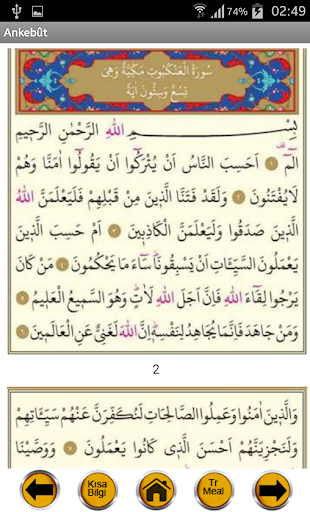 74% 02:49
Ankebût
سُورَةُ الْعَنْكَبُوتِ مَكِّيَّةٌ وَهِيَ
تِسْعٌ وَسِتُّونَ اٰيَةً
بِسْمِ اللّٰهِ الرَّحْمٰنِ الرَّحِيمِ
الٓمٓ ﴿١﴾ اَحَسِبَ النَّاسُ اَنْ يُتْرَكُٓوا اَنْ يَقُولُٓوا اٰمَنَّا وَهُمْ
لَا يُفْتَنُونَ ﴿٢﴾ وَلَقَدْ فَتَنَّا الَّذِينَ مِنْ قَبْلِهِمْ فَلَيَعْلَمَنَّ اللّٰهُ
الَّذِينَ صَدَقُوا وَلَيَعْلَمَنَّ الْكَاذِبِينَ ﴿٣﴾ اَمْ حَسِبَ الَّذِينَ
يَعْمَلُونَ السَّيِّـَٔاتِ اَنْ يَسْبِقُونَا سَٓاءَ مَا يَحْكُمُونَ ﴿٤﴾ مَنْ كَانَ
يَرْجُوا لِقَٓاءَ اللّٰهِ فَاِنَّ اَجَلَ اللّٰهِ لَاٰتٍ وَهُوَ السَّمِيعُ الْعَلِيمُ ﴿٥﴾
وَمَنْ جَاهَدَ فَاِنَّمَا يُجَاهِدُ لِنَفْسِهِ اِنَّ اللّٰهَ لَغَنِيٌّ عَنِ الْعَالَمِينَ ﴿٦﴾
2
وَالَّذِينَ اٰمَنُوا وَعَمِلُوا الصَّالِحَاتِ لَنُكَفِّرَنَّ عَنْهُمْ سَيِّـَٔاتِهِمْ
وَلَنَجْزِيَنَّهُمْ اَحْسَنَ الَّذِي كَانُوا يَعْمَلُونَ ﴿٧﴾ وَوَصَّيْنَا
Kısa
Bilgi
Tr
Meal